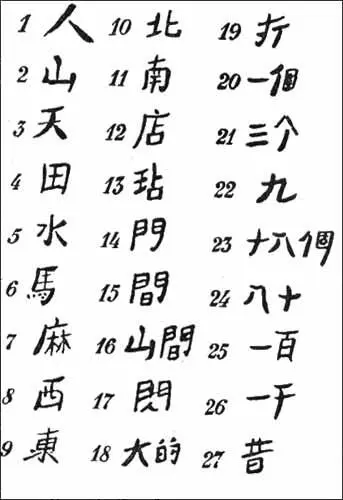 1 人
2 山
3 天
4 田
5 水
6 馬
7 麻
8 西
9 東
10 北
11 南
12 店
13 玷
14 門
15 間
16 山間
17
18 大的
19
20 一個
21 三个
22 九
23 十八個
24 八十
25 一百
26 一千
27 昔